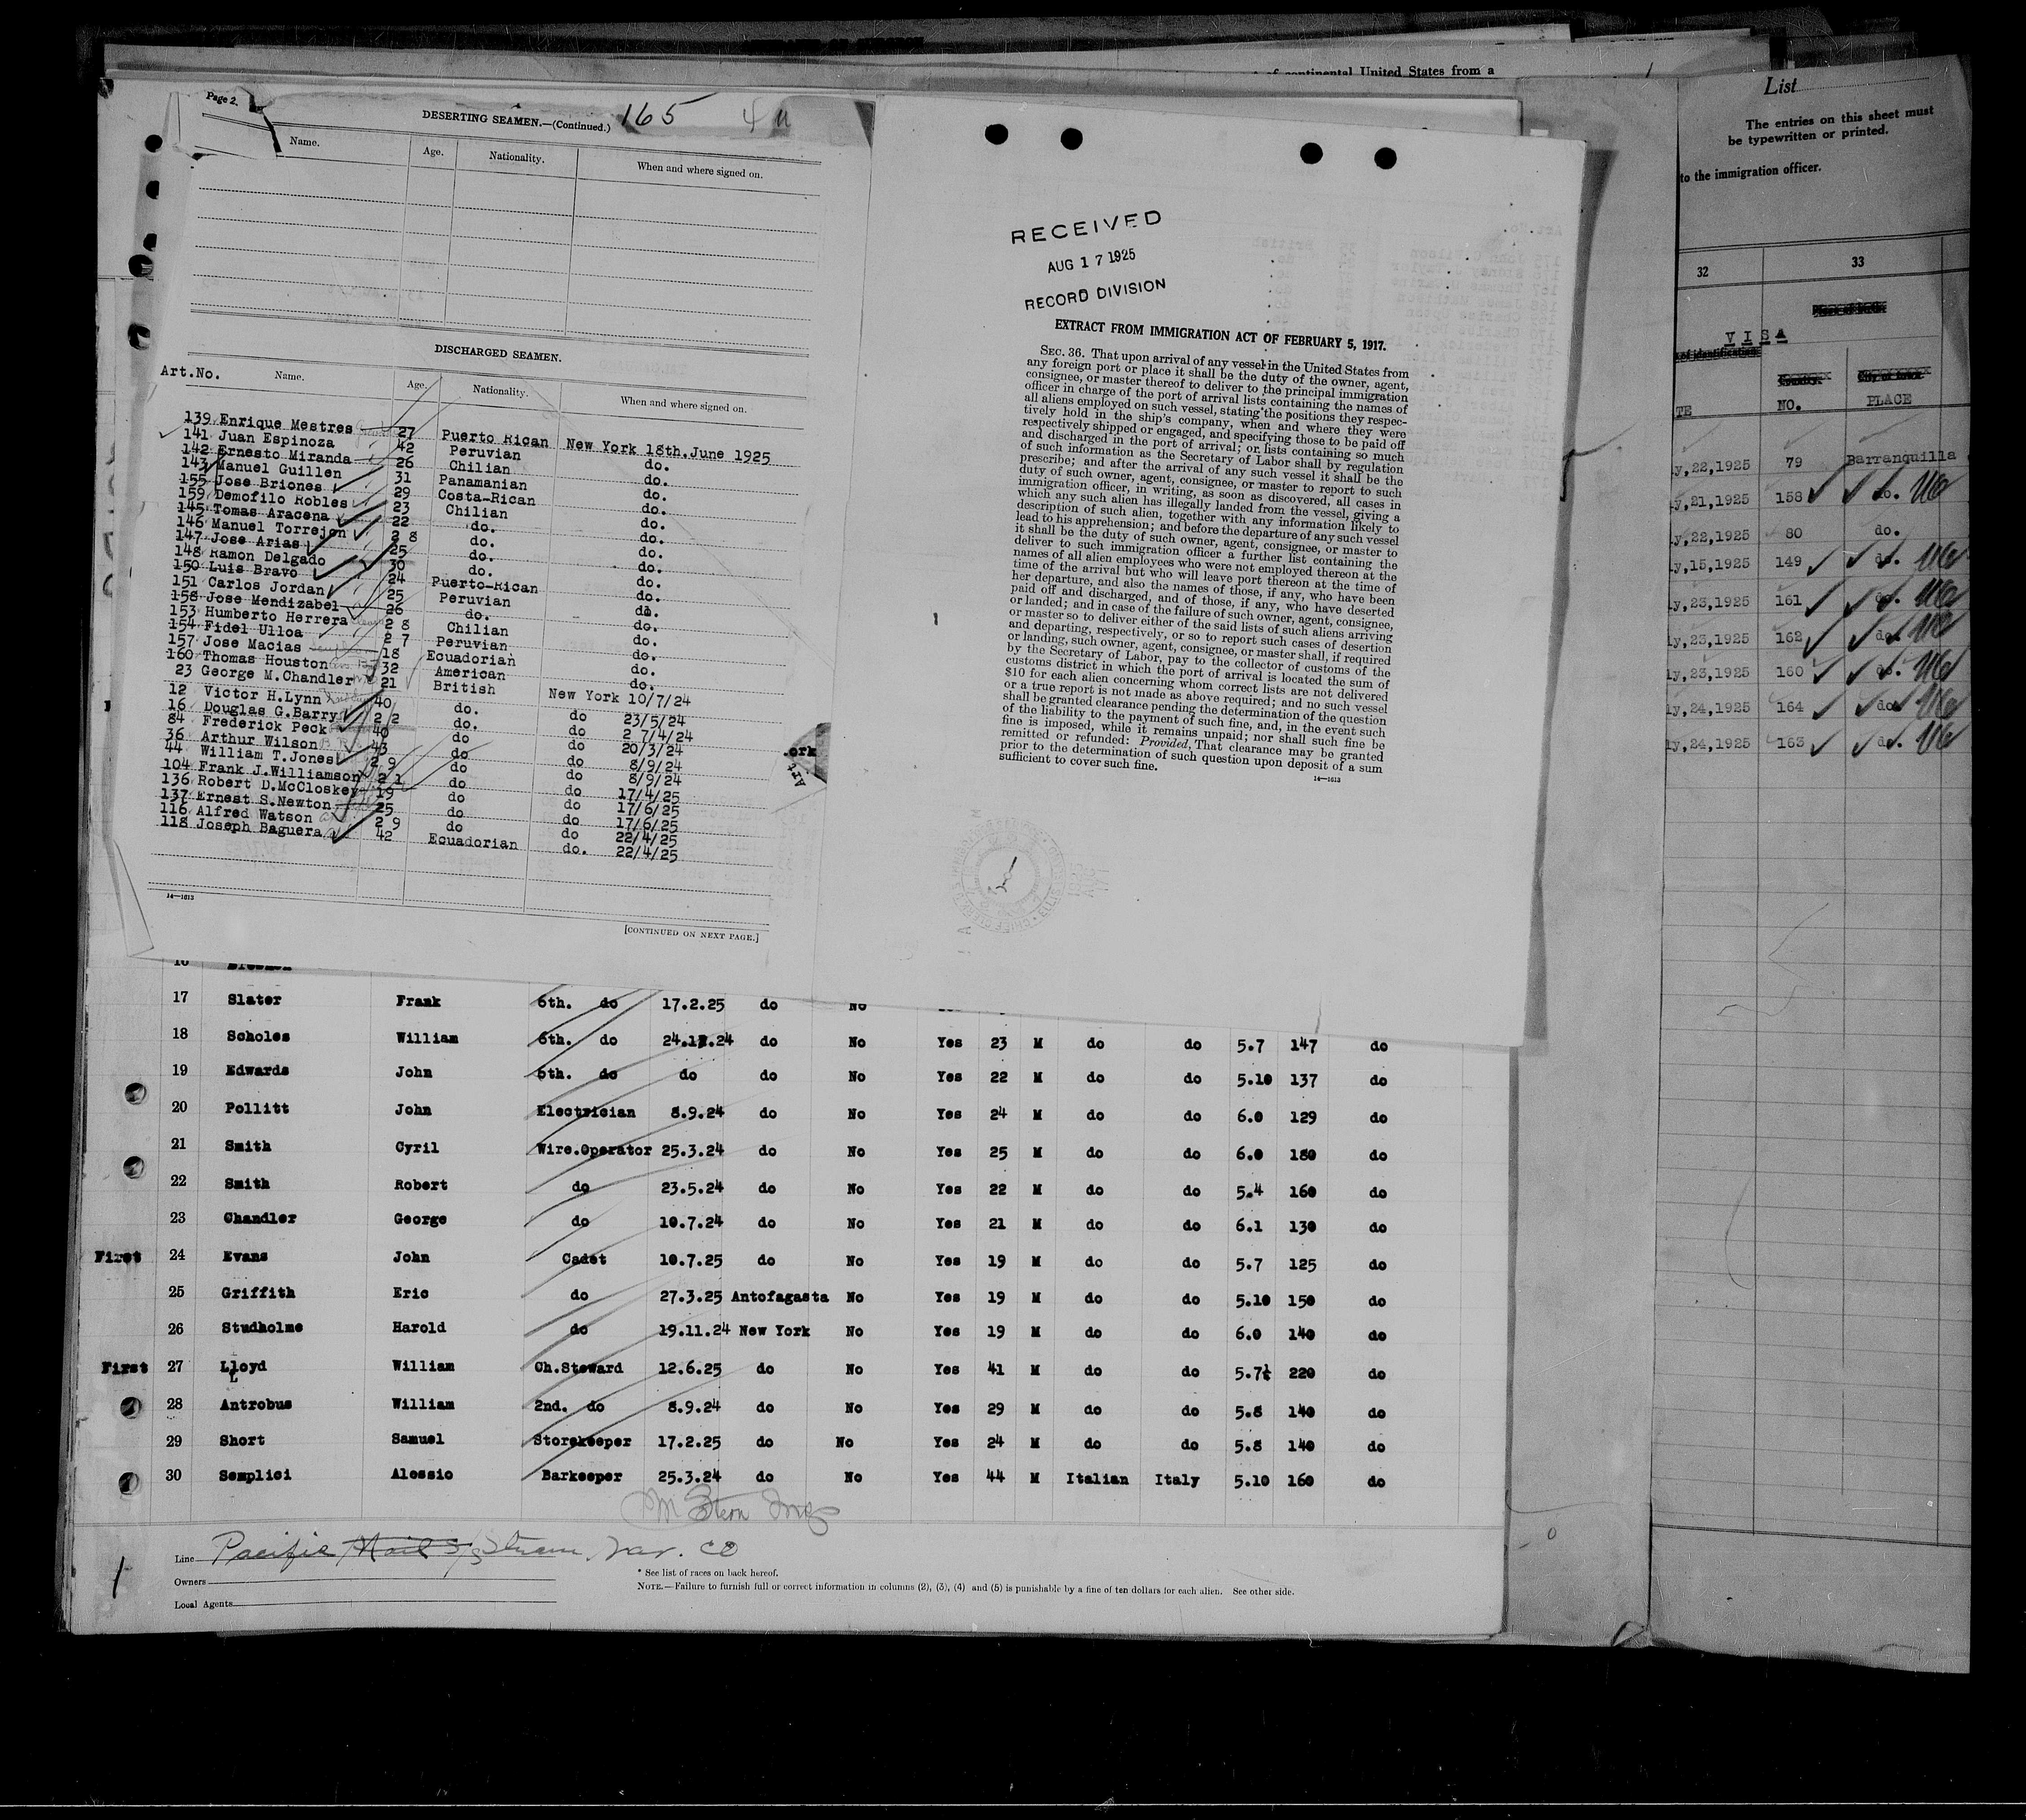 of continental United States from a
Page 2.
DESERTING SEAMEN.—(Continued.) 165
Name. Age. Nationality. When and where signed on.
DISCHARGED SEAMEN.
Art.No. Name. Age. Nationality. When and where signed on.
139 Enrique Mestres 27 Puerto Rican New York 18th.June 1925
141 Juan Espinoza 42 Peruvian do.
142 Ernesto Miranda 26 Chilian do.
143 Manuel Guillen 31 Panamanian do.
155 Jose Briones 29 Costa-Rican do.
159 Demofilo Robles 23 Chilian do.
145 Tomas Aracena 22 do. do.
146 Manuel Torrejon 28 do. do.
147 Jose Arias 25 do. do.
148 Ramon Delgado 30 do. do.
150 Luis Bravo 24 Puerto-Rican do.
151 Carlos Jordan 25 Peruvian do.
158 Jose Mendizabel 26 do. do.
153 Humberto Herrera 28 Chilian do.
154 Fidel Ulloa 27 Peruvian do.
157 Jose Macias 18 Ecuadorian do.
160 Thomas Houston 32 American do.
23 George M.Chandler 21 British New York 10/7/24
12 Victor H.Lynn 40 do. do 23/5/24
16 Douglas G.Barry 22 do. do 27/4/24
84 Frederick Peck 40 do do 20/3/24
36 Arthur Wilson 43 do do 8/9/24
44 William T.Jones 29 do do 8/9/24
104 Frank J.Williamson 21 do do 17/4/25
136 Robert D.McCloskey 19 do do 17/6/25
137 Ernest S.Newton 25 do do 17/6/25
116 Alfred Watson 29 do do 22/4/25
118 Joseph Baguera 42 Ecuadorian do. 22/4/25
14—1613
[CONTINUED ON NEXT PAGE.]
RECEIVED
AUG 17 1925
RECORD DIVISION
EXTRACT FROM IMMIGRATION ACT OF FEBRUARY 5, 1917.
SEC. 36. That upon arrival of any vessel in the United States from
any foreign port or place it shall be the duty of the owner, agent,
consignee, or master thereof to deliver to the principal immigration
officer in charge of the port of arrival lists containing the names of
all aliens employed on such vessel, stating the positions they respec-
tively hold in the ship's company, when and where they were
respectively shipped or engaged, and specifying those to be paid off
and discharged in the port of arrival; or lists containing so much
of such information as the Secretary of Labor shall by regulation
prescribe; and after the arrival of any such vessel it shall be the
duty of such owner, agent, consignee, or master to report to such
immigration officer, in writing, as soon as discovered, all cases in
which any such alien has illegally landed from the vessel, giving a
description of such alien, together with any information likely to
lead to his apprehension; and before the departure of any such vessel
it shall be the duty of such owner, agent, consignee, or master to
deliver to such immigration officer a further list containing the
names of all alien employees who were not employed thereon at the
time of the arrival but who will leave port thereon at the time of
her departure, and also the names of those, if any, who have been
paid off and discharged, and of those, if any, who have deserted
or landed; and in case of the failure of such owner, agent, consignee,
or master so to deliver either of the said lists of such aliens arriving
and departing, respectively, or so to report such cases of desertion
or landing, such owner, agent, consignee, or master shall, if required
by the Secretary of Labor, pay to the collector of customs of the
customs district in which the port of arrival is located the sum of
$10 for each alien concerning whom correct lists are not delivered
or a true report is not made as above required; and no such vessel
shall be granted clearance pending the determination of the question
of the liability to the payment of such fine, and, in the event such
fine is imposed, while it remains unpaid; nor shall such fine be
remitted or refunded: Provided, That clearance may be granted
prior to the determination of such question upon deposit of a sum
sufficient to cover such fine.
14—1613
List
The entries on this sheet must
be typewritten or printed.
to the immigration officer.
32 33
VISA
of identification
Country. City or town
TE NO. PLACE
y,22,1925 79 Barranquilla
y,21,1925 158 do.
y,22,1925 80 do.
y,15,1925 149 do.
y,23,1925 161 do.
y,23,1925 162 do.
y,23,1925 160 do.
y,24,1925 164 do.
y,24,1925 163 do.
ork
Art
17 Slater Frank 6th. do 17.2.25 do No
18 Scholes William 6th. do 24.12.24 do No Yes 23 M do do 5.7 147 do
19 Edwards John 6th. do do do No Yes 22 M do do 5.10 137 do
20 Pollitt John Electrician 8.9.24 do No Yes 24 M do do 6.0 129 do
21 Smith Cyril Wire.Operator 25.3.24 do No Yes 25 M do do 6.0 180 do
22 Smith Robert do 23.5.24 do No Yes 22 M do do 5.4 160 do
23 Chandler George do 10.7.24 do No Yes 21 M do do 6.1 130 do
First 24 Evans John Cadet 10.7.25 do No Yes 19 M do do 5.7 125 do
25 Griffith Eric do 27.3.25 Antofagasta No Yes 19 M do do 5.10 150 do
26 Studholme Harold do 19.11.24 New York No Yes 19 M do do 6.0 140 do
First 27 Lloyd William Ch.Steward 12.6.25 do No Yes 41 M do do 5.7½ 220 do
28 Antrobus William 2nd. do 8.9.24 do No Yes 29 M do do 5.8 140 do
29 Short Samuel Storekeeper 17.2.25 do No Yes 24 M do do 5.8 140 do
30 Semplici Alessio Barkeeper 25.3.24 do No Yes 44 M Italian Italy 5.10 160 do
Line Pacific Mail S/S Steam. Nav. Co
Owners
Local Agents
* See list of races on back hereof.
NOTE.—Failure to furnish full or correct information in columns (2), (3), (4) and (5) is punishable by a fine of ten dollars for each alien. See other side.